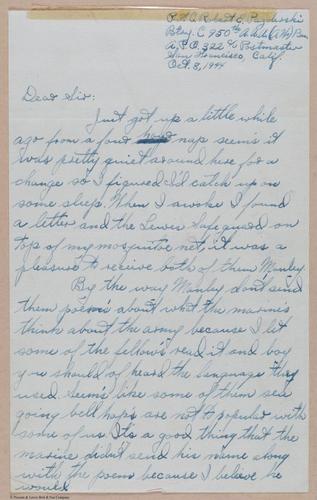 Btry. C. 950th A.A.A. (AW) Bn
A.P.O. 322 c/o Postmaster
San Francisco, Calif.
Oct. 8, 1944
Dear Sir:
Just got up a little while
ago from a four hour nap seems it
was pretty quiet around here for a
change so I figured I'd catch up on
some sleep. When I awoke I found
a letter and the Lewis Safeguard on
top of my mosquitoe net, it was a
pleasure to receive both of them Manley.
By the way Manley don't send
them poem's about what the marine's
think about the army because I let
some of the fellow's read it and boy
you should of heard the language they
used. Seem's like some of them sea
going bell hops are not to popular with
some of us. It's a good thing that the
marine didn't send his name along
with the poem because I believe he
would